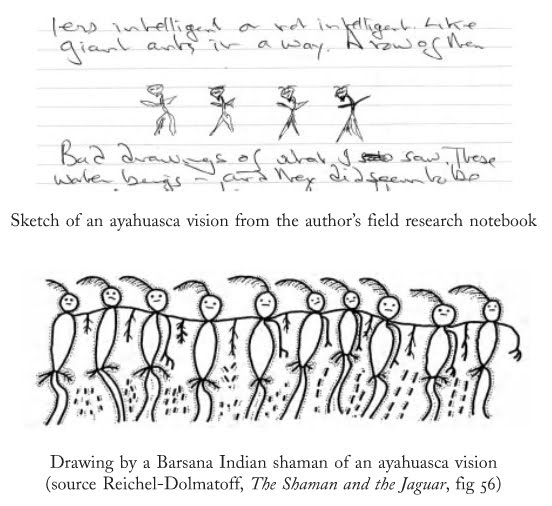 less intelligent or not intelligent. Like
giant ants in a way. A row of them
Bad drawings of what I saw. These
water beings – and they did seem to be
Sketch of an ayahuasca vision from the author's field research notebook
Drawing by a Barsana Indian shaman of an ayahuasca vision
(source Reichel-Dolmatoff, The Shaman and the Jaguar, fig 56)